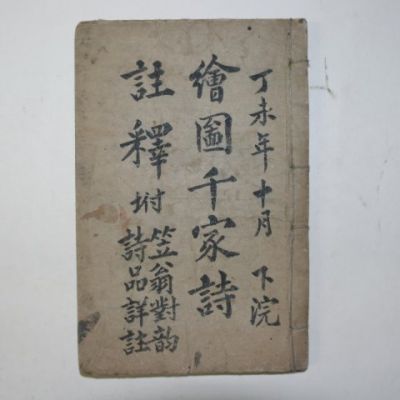 丁未年十月下浣
繪圖千家詩
註釋坿
笠翁對韵
詩品詳註